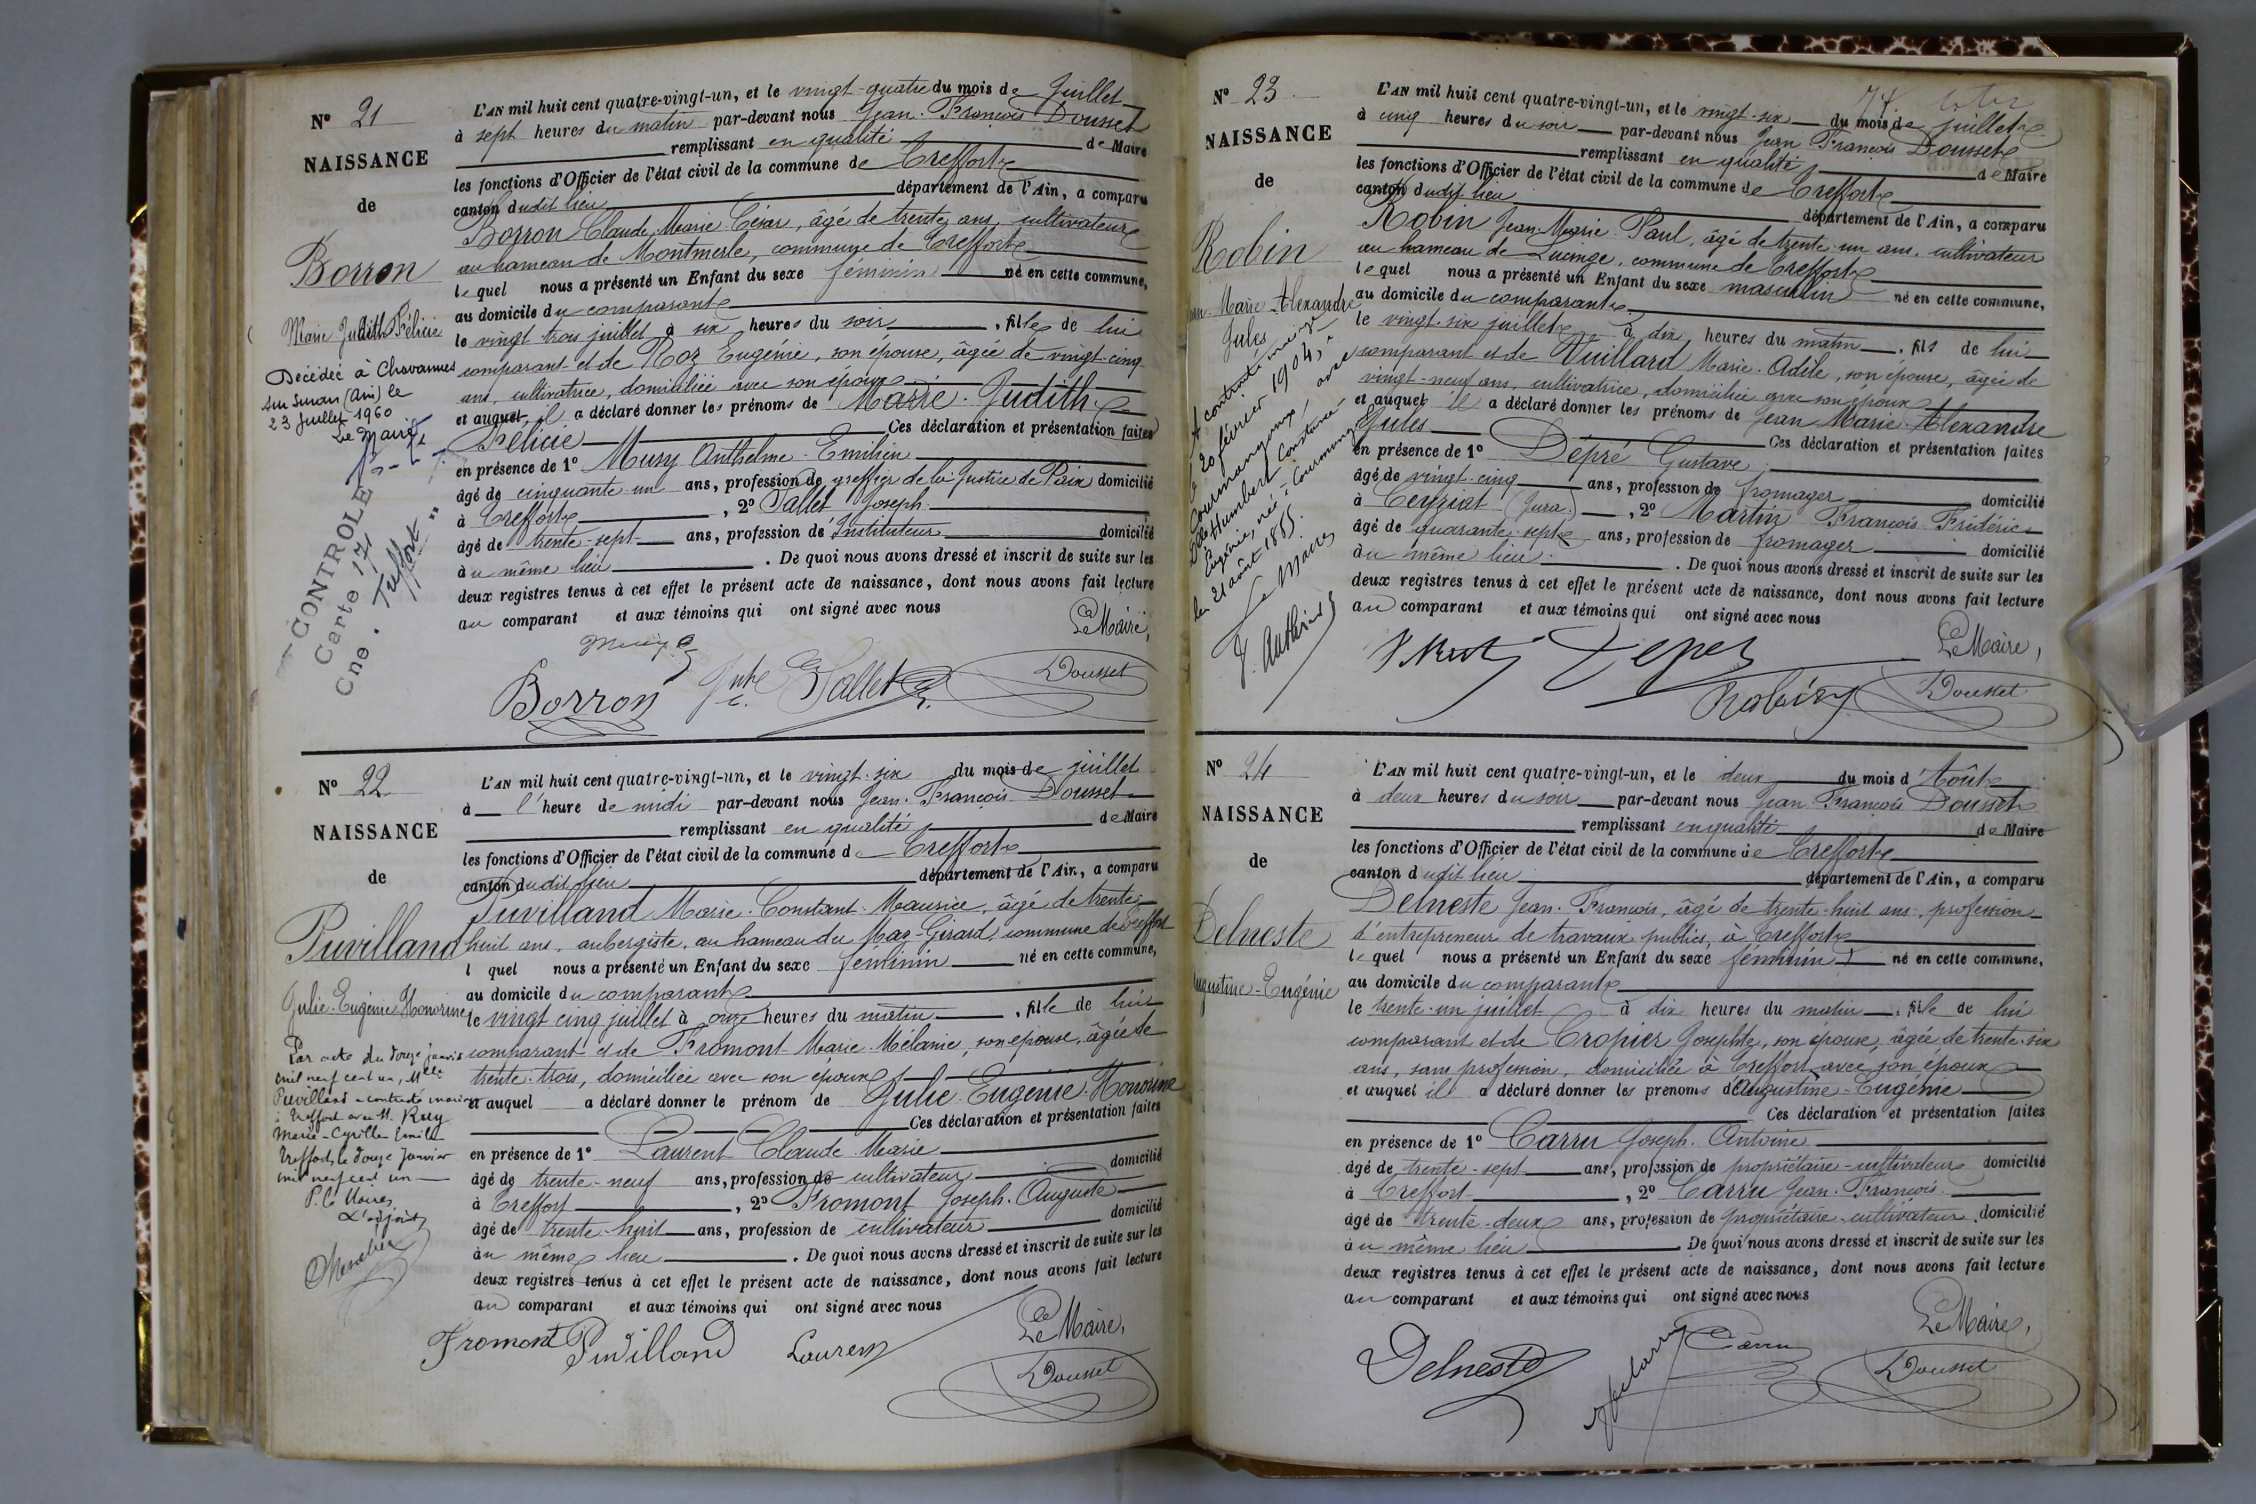 N° 21
NAISSANCE
de
Borron
Marie Judith Félicie
Décédée à Chavannes
sur Suran (Ain) le
23 Juillet 1960
Le Maire
CONTROLE
Carte 171
Cne. Treffort
L'AN mil huit cent quatre-vingt-un, et le vingt-quatre du mois de Juillet
à sept heures du matin par-devant nous Jean-François Dousset
remplissant en qualité de Maire
les fonctions d'Officier de l'état civil de la commune de Treffort
canton dudit lieu département de l'Ain, a comparu
Borron Claude Marie César, âgé de trente ans, cultivateur
au hameau de Montmerle, commune de Treffort
lequel nous a présenté un Enfant du sexe féminin né en cette commune,
au domicile du comparant
le vingt trois juillet à six heures du soir, fille de lui
comparant et de Roz Eugénie, son épouse, âgée de vingt-cinq
ans, cultivatrice, domiciliée avec son époux
et auquel il a déclaré donner les prénoms de Marie-Judith
Félicie Ces déclaration et présentation faites
en présence de 1° Musy Anthelme-Emilien
âgé de cinquante-un ans, profession de greffier de la Justice de Paix domicilié
à Treffort, 2° Tallet Joseph
âgé de trente-sept ans, profession d'Instituteur domicilié
au même lieu. De quoi nous avons dressé et inscrit de suite sur les
deux registres tenus à cet effet le présent acte de naissance, dont nous avons fait lecture
au comparant et aux témoins qui ont signé avec nous
Le Maire,
Borron Tallet Dousset
N° 22
NAISSANCE
de
Puvilland
Julie-Eugénie Honorine
Par acte du douze janvier
mil neuf cent un, Melle
Puvilland a contracté mariage
à Treffort avec M. Ruy
Marie-Cyrille Emile
Treffort, le douze Janvier
mil neuf cent un
P. le Maire,
L'adjoint
L'AN mil huit cent quatre-vingt-un, et le vingt-six du mois de juillet
à l'heure de midi par-devant nous Jean-François Dousset
remplissant en qualité de Maire
les fonctions d'Officier de l'état civil de la commune de Treffort
canton dudit lieu département de l'Ain, a comparu
Puvilland Marie-Constant-Maurice, âgé de trente-
huit ans, aubergiste, au hameau du Maz-Girard, commune de Treffort
l quel nous a présenté un Enfant du sexe féminin né en cette commune,
au domicile du comparant
le vingt cinq juillet à onze heures du matin, fille de lui
comparant et de Fromont Marie-Mélanie, son épouse, âgée de
trente-trois, domiciliée avec son époux
et auquel a déclaré donner le prénom de Julie-Eugénie-Honorine
Ces déclaration et présentation faites
en présence de 1° Laurent Claude-Marie
âgé de trente-neuf ans, profession de cultivateur domicilié
à Treffort, 2° Fromont Joseph-Auguste
âgé de trente-huit ans, profession de cultivateur domicilié
au même lieu. De quoi nous avons dressé et inscrit de suite sur les
deux registres tenus à cet effet le présent acte de naissance, dont nous avons fait lecture
au comparant et aux témoins qui ont signé avec nous
Le Maire,
Fromont Puvilland Laurent Dousset
N° 23
NAISSANCE
de
Robin
Jean-Marie-Alexandre
Jules
A contracté mariage
le 20 février 1904, à
Courmangoux, avec
Delle Humbert Constance
Eugénie, née à Courmangoux
le 21 août 1885.
Le Maire
L'AN mil huit cent quatre-vingt-un, et le vingt-six du mois de juillet
à cinq heures du soir par-devant nous Jean François Dousset
remplissant en qualité de Maire
les fonctions d'Officier de l'état civil de la commune de Treffort
canton dudit lieu département de l'Ain, a comparu
Robin Jean-Marie-Paul, âgé de trente-un ans, cultivateur
au hameau de Lucinge, commune de Treffort
lequel nous a présenté un Enfant du sexe masculin né en cette commune,
au domicile du comparant
le vingt-six juillet à dix heures du matin, fils de lui
comparant et de Vuillard Marie-Adèle, son épouse, âgée de
vingt-neuf ans, cultivatrice, domiciliée avec son époux
et auquel il a déclaré donner les prénoms de Jean Marie-Alexandre
Jules Ces déclaration et présentation faites
en présence de 1° Dépré Gustave
âgé de vingt-cinq ans, profession de fromager domicilié
à Ceyziat (Jura), 2° Martin François-Frédéric
âgé de quarante-sept ans, profession de fromager domicilié
au même lieu. De quoi nous avons dressé et inscrit de suite sur les
deux registres tenus à cet effet le présent acte de naissance, dont nous avons fait lecture
au comparant et aux témoins qui ont signé avec nous
Le Maire,
Robin Dousset
N° 24
NAISSANCE
de
Delneste
Augustine-Eugénie
L'AN mil huit cent quatre-vingt-un, et le deux du mois d'Août
à deux heures du soir par-devant nous Jean-François Dousset
remplissant en qualité de Maire
les fonctions d'Officier de l'état civil de la commune de Treffort
canton dudit lieu département de l'Ain, a comparu
Delneste Jean-François, âgé de trente-huit ans, profession
d'entrepreneur de travaux publics, à Treffort
lequel nous a présenté un Enfant du sexe féminin né en cette commune,
au domicile du comparant
le trente-un juillet à dix heures du matin, fille de lui
comparant et de Cropier Josephte, son épouse, âgée de trente-six
ans, sans profession, domiciliée à Treffort avec son époux
et auquel il a déclaré donner les prénoms d'Augustine-Eugénie
Ces déclaration et présentation faites
en présence de 1° Carru Joseph-Antoine
âgé de trente-sept ans, profession de propriétaire-cultivateur domicilié
à Treffort, 2° Carru Jean-François
âgé de trente-deux ans, profession de propriétaire-cultivateur domicilié
au même lieu. De quoi nous avons dressé et inscrit de suite sur les
deux registres tenus à cet effet le présent acte de naissance, dont nous avons fait lecture
au comparant et aux témoins qui ont signé avec nous
Le Maire,
Delneste Carru Dousset